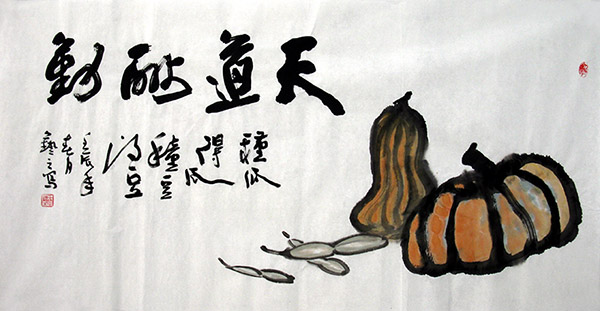 天道酬勤
種瓜
得瓜
種豆
得豆
壬辰年
春月
藝之寫